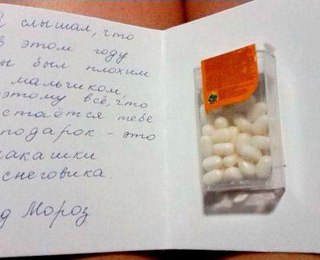 Я слышал, что
в этом году
ты был плохим
мальчиком,
поэтому всё, что
остаётся тебе
подарок - это
какашки
снеговика
Дед Мороз